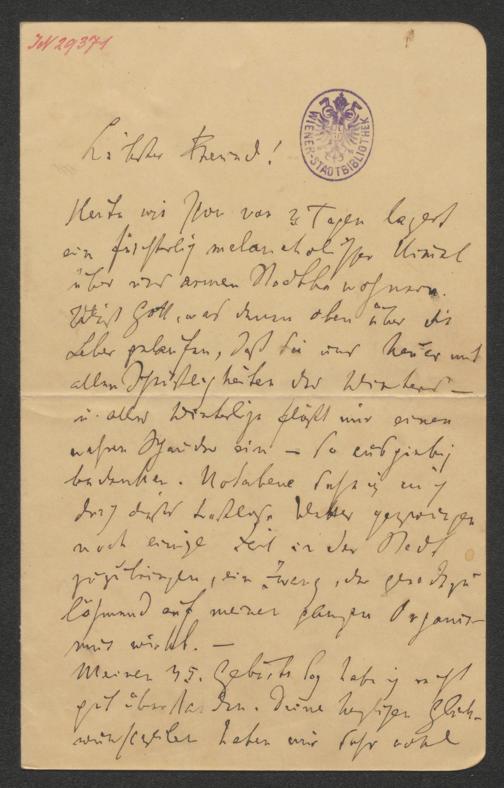 IN 29371
WIENER-STADTBIBLIOTHEK
Liebster Freund!
Heute wie schon vor 3 Tagen lagert
ein fürchterlich melancholischer Himmel
über uns armen Stadtbewohnern.
Weiß Gott, was denen oben über die
Leber gelaufen, daß sie uns heuer mit
allen Scheußlichkeiten des Winters —
u. alles Winterliche flößt mir einen
wahren Schauder ein — so ausgiebig
bedenken. Notabene sehe ich mich
durch dieses trostlose Wetter gezwungen
noch einige Zeit in der Stadt
zuzubringen, ein Zwang, der geradezu
lähmend auf meinen ganzen Organis-
mus wirkt. —
Meinen 45. Geburtstag hab ich recht
gut überstanden. Deine herzigen Glück-
wunschzeilen haben mir sehr wohl